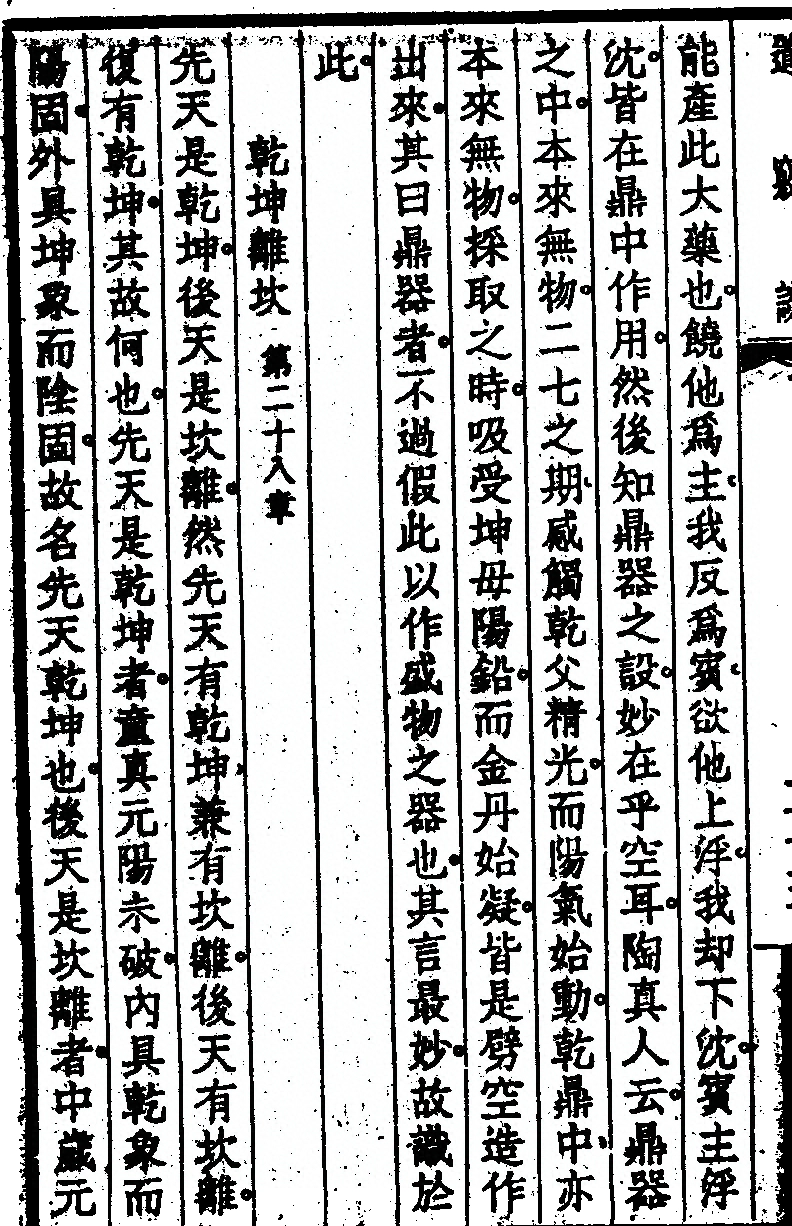 道竅談
能產此大藥也饒他爲主我反爲賓欲他上浮我却下沈賓主浮
沈皆在鼎中作用然後知鼎器之設妙在乎空耳陶真人云鼎器
之中本來無物二七之期感觸乾父精光而陽氣始動乾鼎中亦
本來無物採取之時吸受坤母陽鉛而金丹始凝皆是劈空造作
出來其曰鼎器者不過假此以作盛物之器也其言最妙故識於
此
乾坤離坎 第二十八章
先天是乾坤後天是坎離然先天有乾坤兼有坎離後天有坎離
復有乾坤其故何也先天是乾坤者童真元陽未破內具乾象而
陽固外具坤象而陰固故名先天乾坤也後天是坎離者中歲元